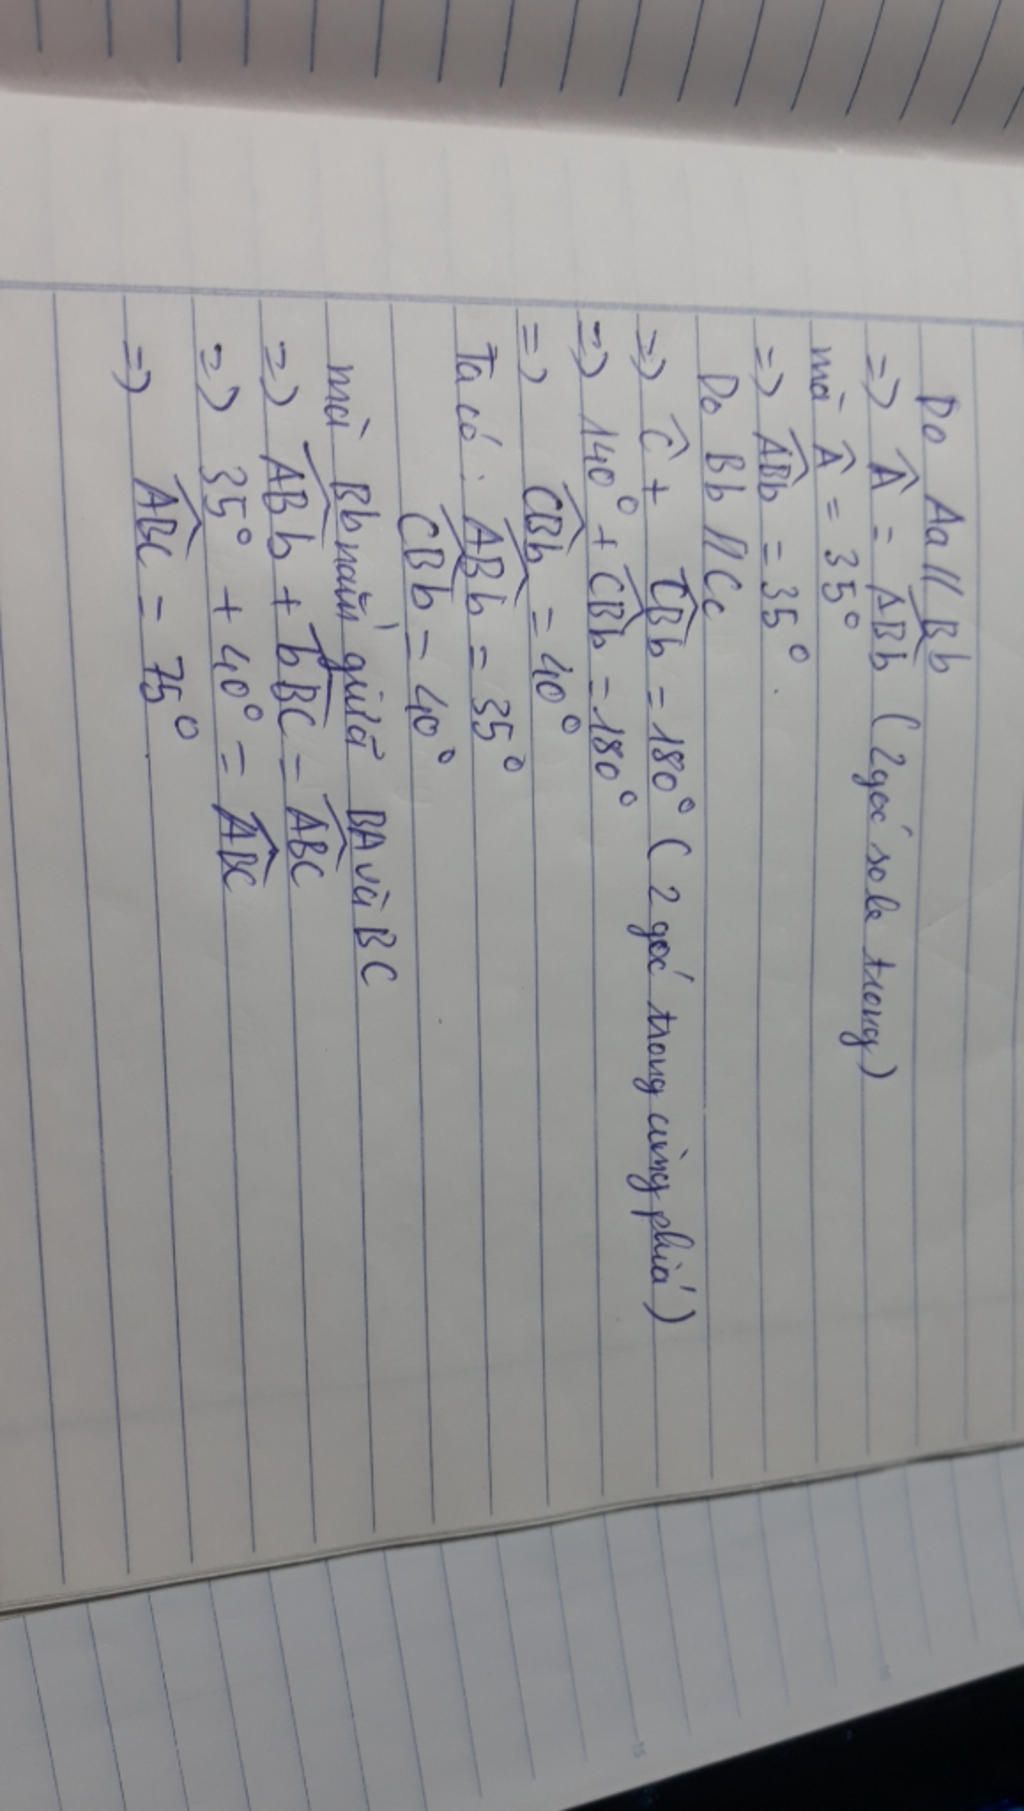 Do Aa // Bb
=) Â = ABb̂ (2 góc so le trong)
mà Â = 35°
=) ABb̂ = 35°.
Do Bb // Cc
=) Ĉ + CBb̂ = 180° (2 góc trong cùng phía)
=) 140° + CBb̂ = 180°
=) CBb̂ = 40°
Ta có: ABb̂ = 35°
CBb̂ = 40°
mà Bb nằm giữa BA và BC
=) ABb̂ + bBĈ = ABĈ
=) 35° + 40° = ABĈ
=) ABĈ = 75°